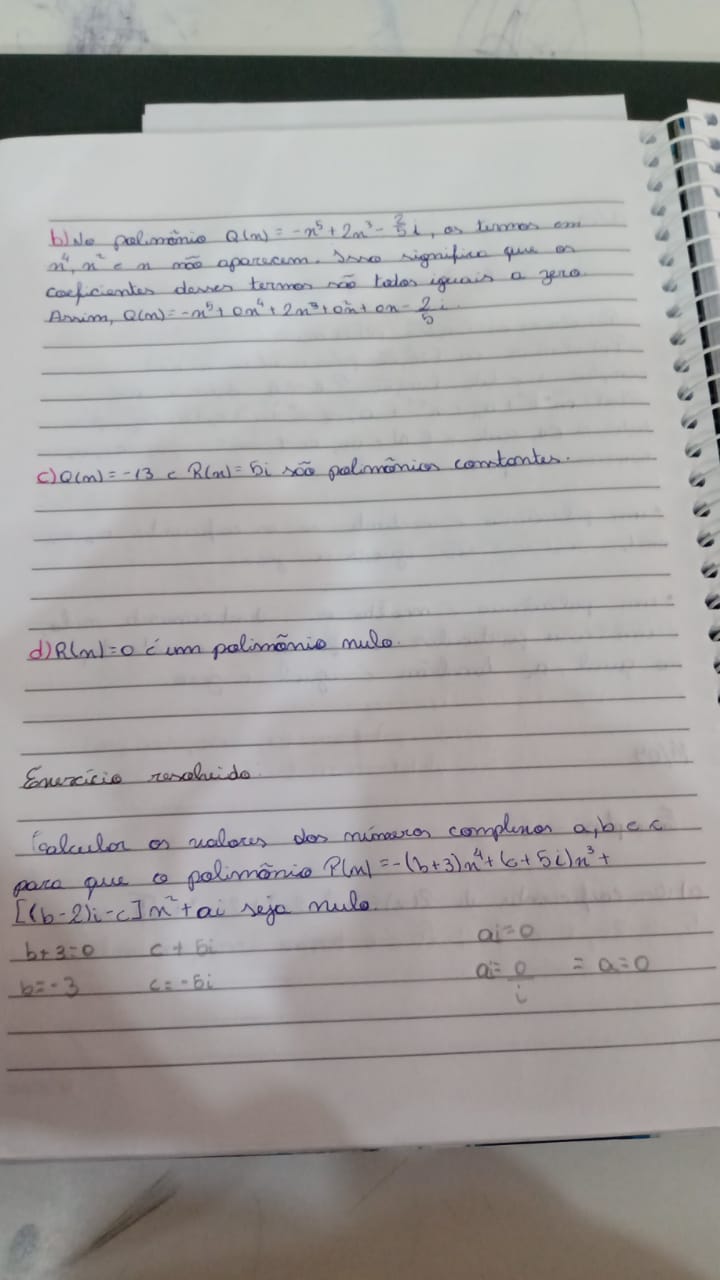 b) No polimônio Q(x) = -x⁵ + 2x³ - 2/5 i, os termos em
x⁴, x² e x não aparecem. Isso significa que os
coeficientes desses termos são todos iguais a zero.
Assim, Q(x) = -x⁵ + 0x⁴ + 2x³ + 0x² + 0x - 2/5 i
c) Q(x) = -13 e R(x) = 5i são polimônios constantes.
d) R(x) = 0 é um polimônio nulo.
Exercício resolvido.
Calcular os valores dos números complexos a, b e c
para que o polimônio P(x) = -(b+3)x⁴ + (c + 5i)x³ +
[(b-2)i - c]x² + ai seja nulo.
b + 3 = 0 c + 5i ai = 0
b = -3 c = -5i ai = 0/i = a = 0